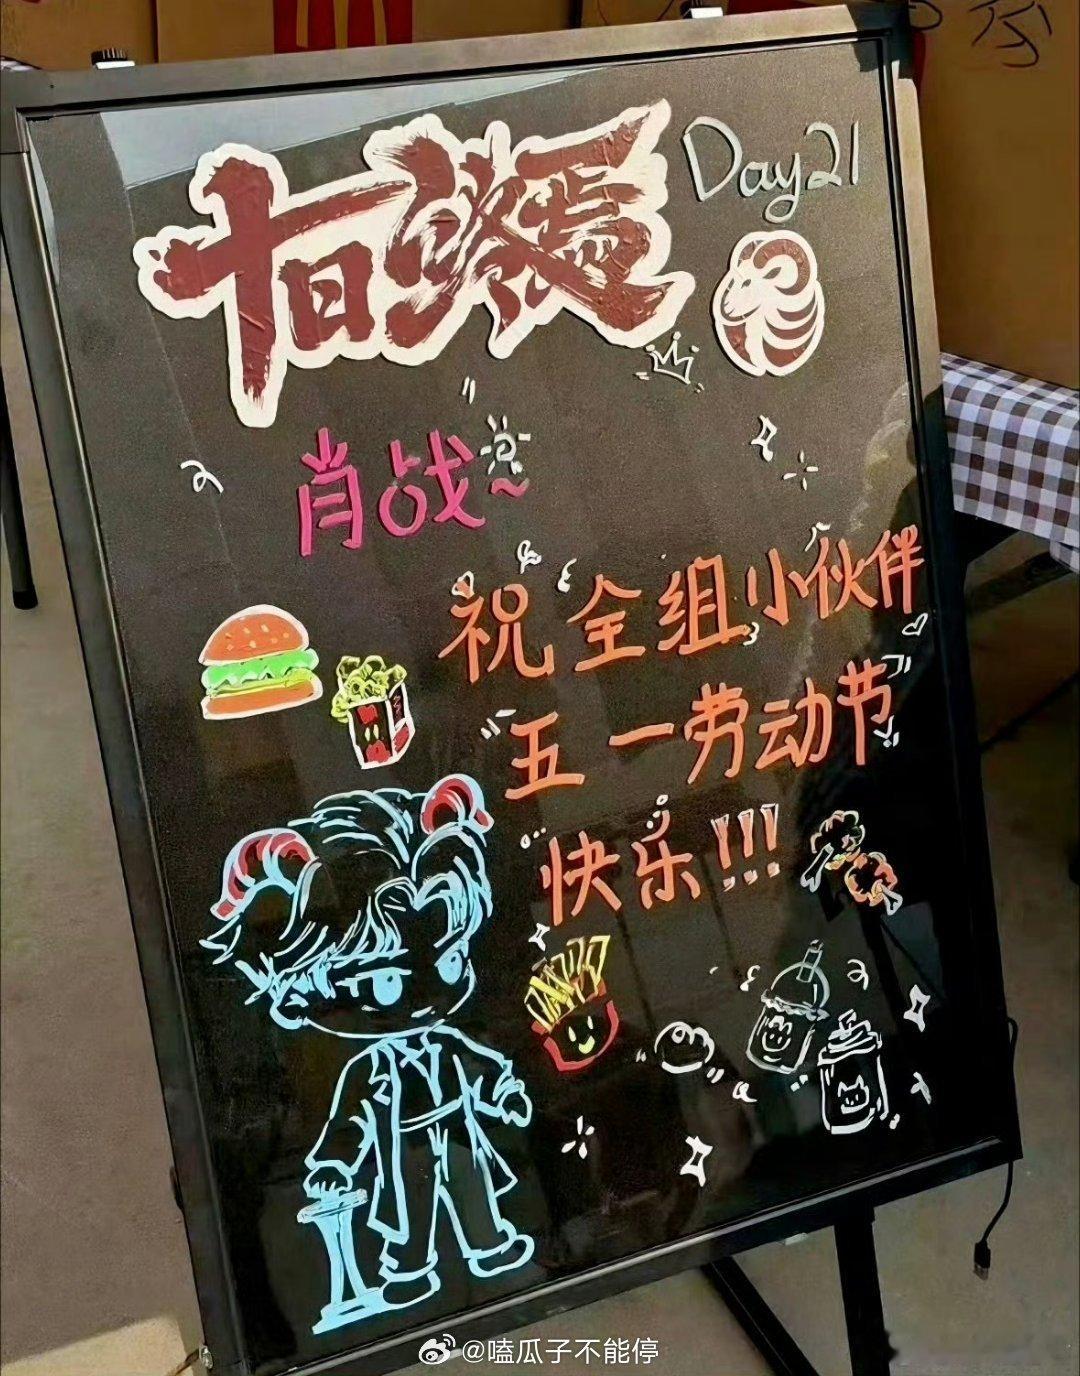 十日终焉
Day21
肖战
祝全组小伙伴
五一劳动节
快乐!!!
@嗑瓜子不能停